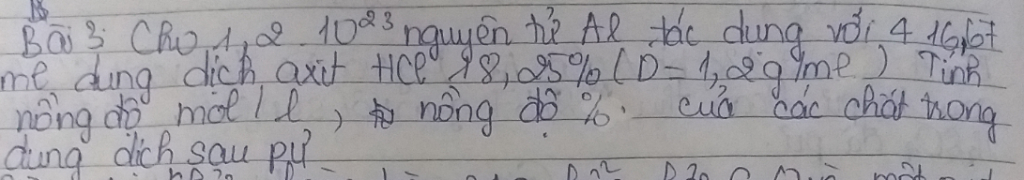 Bài 3: Cho 1,2 . 10²³ nguyên tử Al tác dụng với 416,67
ml dung dịch axit HCl 18,25% (D = 1,2 g/ml) Tính
nồng độ mol/l, nồng độ %. của các chất trong
dung dịch sau pứ